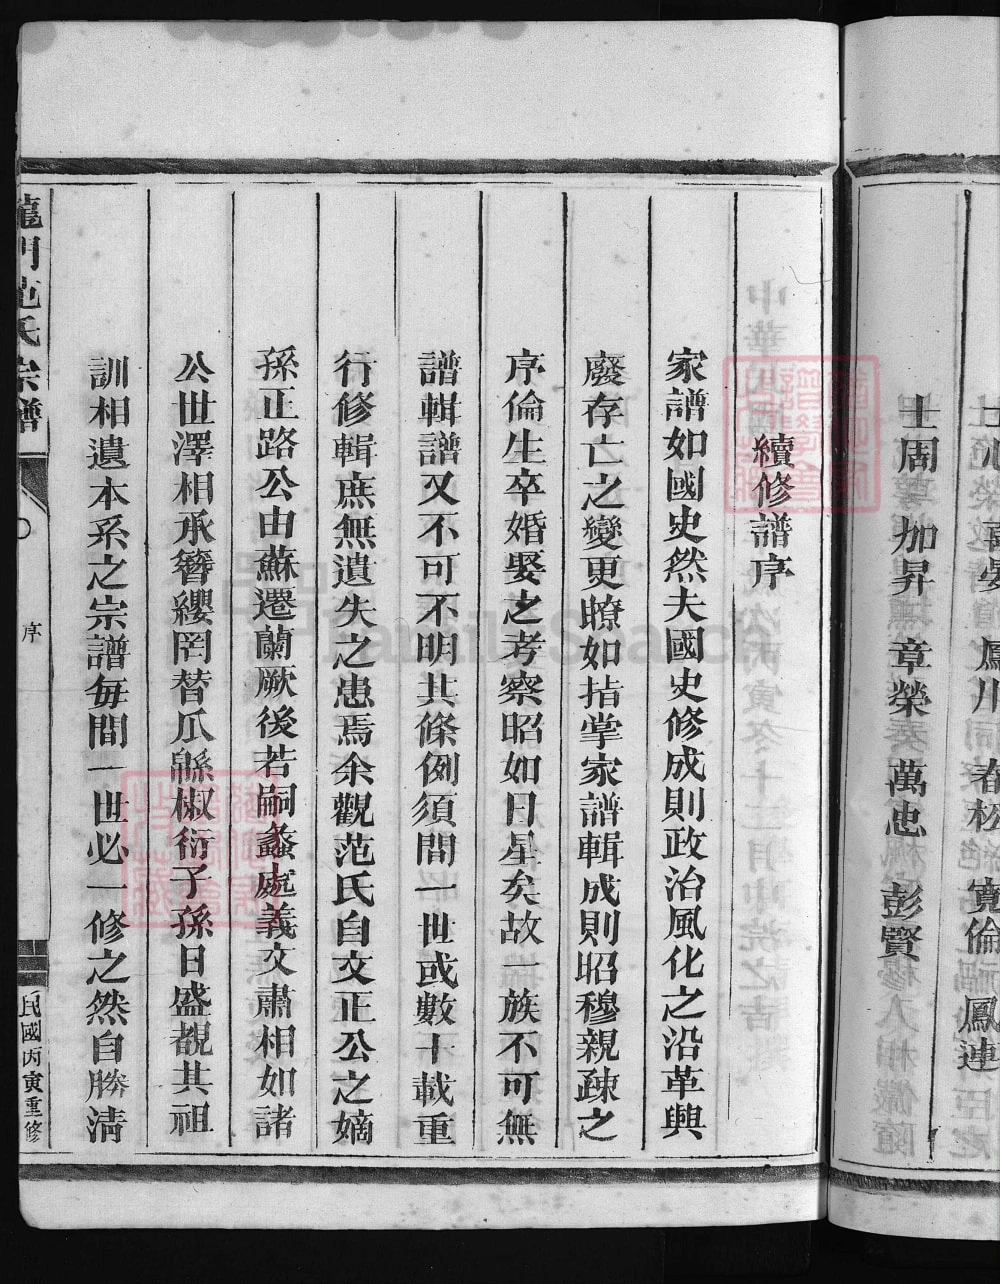 士周 加昇 章榮 萬忠 彭賢
續修譜序
家譜如國史然夫國史修成則政治風化之沿革興
廢存亡之變更瞭如指掌家譜輯成則昭穆親疎之
序倫生卒婚娶之考察昭如日星矣故一族不可無
譜輯譜又不可不明其條例須間一世或數十載重
行修輯庶無遺失之患焉余觀范氏自文正公之嫡
孫正路公由蘇遷蘭厥後若嗣蠡處義文肅相如諸
公世澤相承簪纓罔替瓜緜椒衍子孫日盛覩其祖
訓相遺本系之宗譜每間一世必一修之然自勝清
龍門范氏宗譜
序
民國丙寅重修